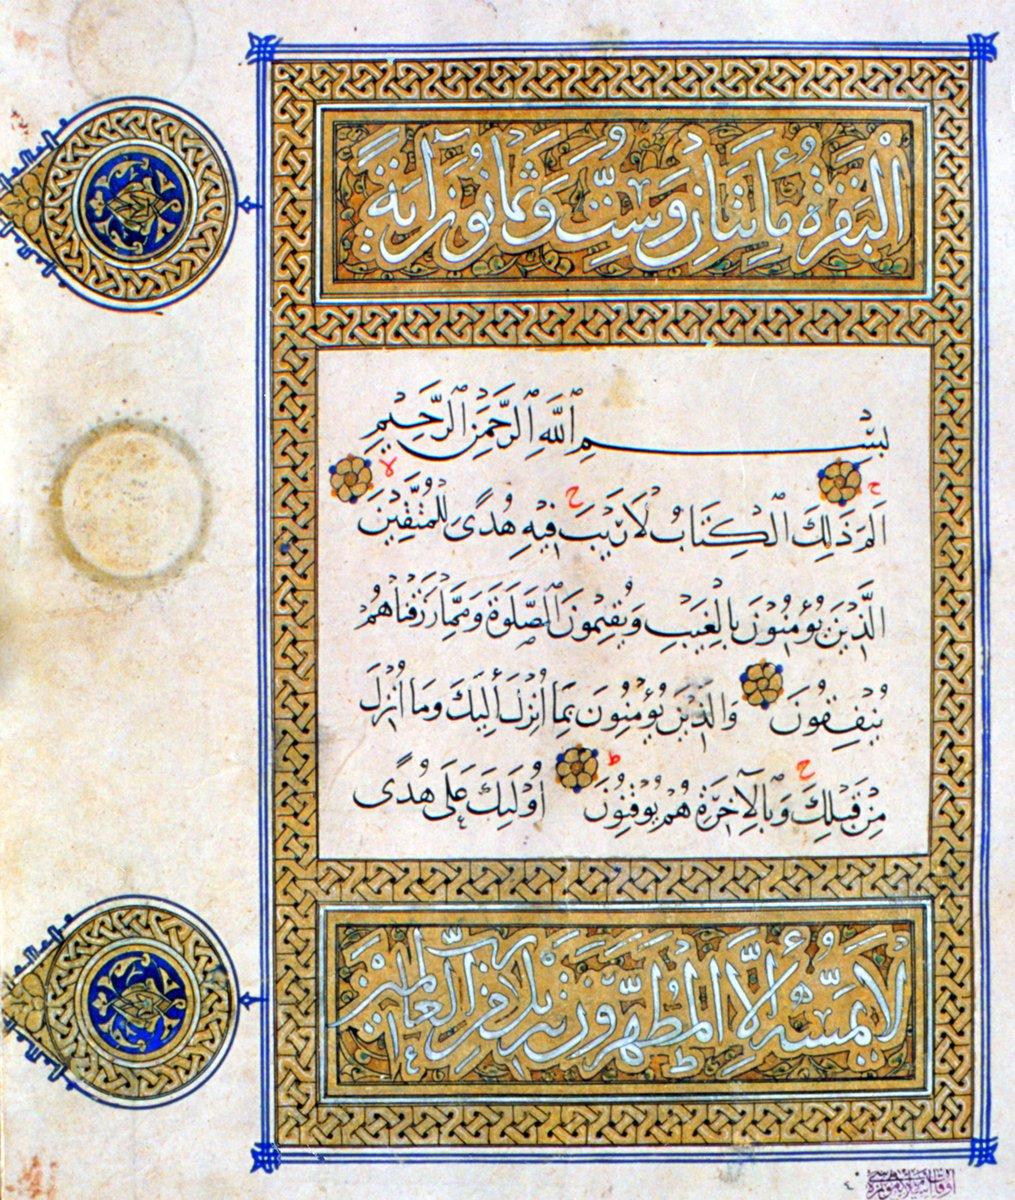 الْبَقَرَةُ مِائَتَانِ وَسِتٌّ وَثَمَانُونَ آيَةً
بِسْمِ اللَّهِ الرَّحْمَنِ الرَّحِيمِ
الم ذَلِكَ الْكِتَابُ لَا رَيْبَ فِيهِ هُدًى لِلْمُتَّقِينَ
الَّذِينَ يُؤْمِنُونَ بِالْغَيْبِ وَيُقِيمُونَ الصَّلَوةَ وَمِمَّا رَزَقْنَاهُمْ
يُنْفِقُونَ وَالَّذِينَ يُؤْمِنُونَ بِمَا أُنْزِلَ إِلَيْكَ وَمَا أُنْزِلَ
مِنْ قَبْلِكَ وَبِالْآخِرَةِ هُمْ يُوقِنُونَ أُولَئِكَ عَلَى هُدًى
لَا يَمَسُّهُ إِلَّا الْمُطَهَّرُونَ تَنْزِيلٌ مِنْ رَبِّ الْعَالَمِينَ